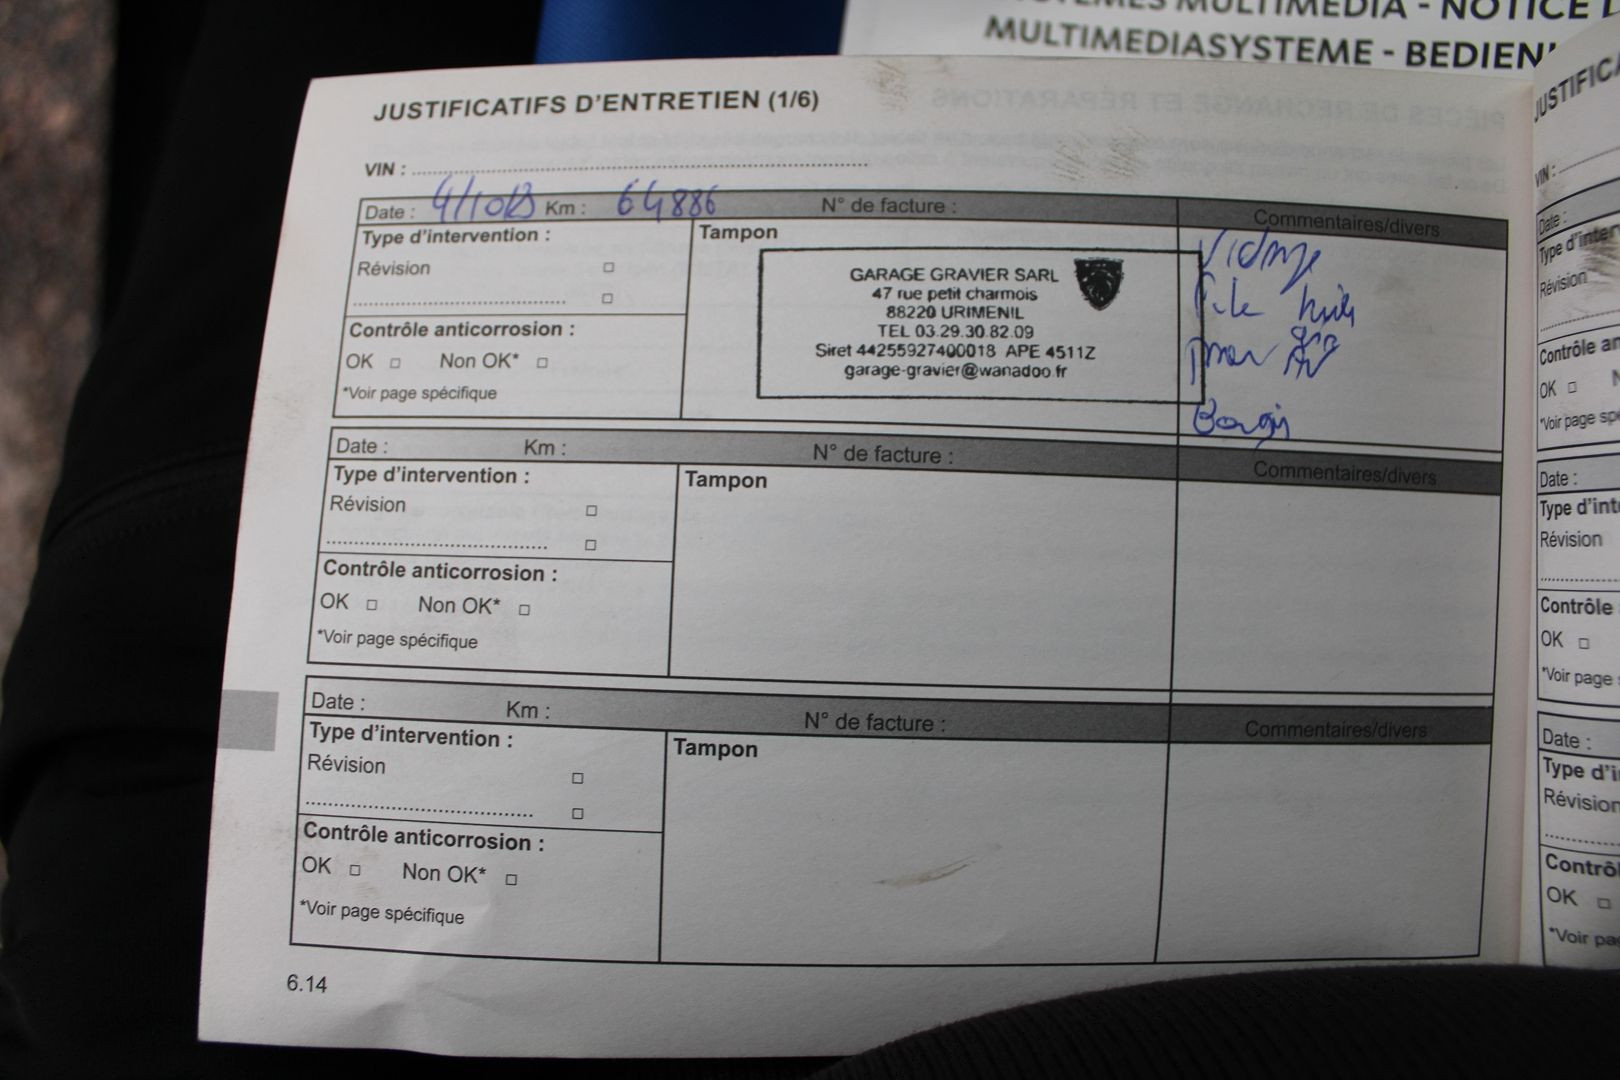 SYSTÈMES MULTIMÉDIA - NOTICE D
MULTIMEDIASYSTEME - BEDIEN
JUSTIFICATIFS D'ENTRETIEN (1/6)
VIN :
Date : Km : 64886 N° de facture : Commentaires/divers
Type d'intervention :
Révision
Contrôle anticorrosion :
OK Non OK*
*Voir page spécifique
Tampon
GARAGE GRAVIER SARL
47 rue petit charmois
88220 URIMENIL
TEL 03.29.30.82.09
Siret 44255927400018 APE 4511Z
garage-gravier@wanadoo.fr
Vidange
huile
Date : Km : N° de facture : Commentaires/divers
Type d'intervention :
Révision
Contrôle anticorrosion :
OK Non OK*
*Voir page spécifique
Tampon
Date : Km : N° de facture : Commentaires/divers
Type d'intervention :
Révision
Contrôle anticorrosion :
OK Non OK*
*Voir page spécifique
Tampon
6.14
JUSTIFICA
VIN :
Date :
Type d'interv
Révision
Contrôle an
OK N
*Voir page spé
Date :
Type d'int
Révision
Contrôle
OK
*Voir page
Date :
Type d'i
Révision
Contrô
OK
*Voir pa